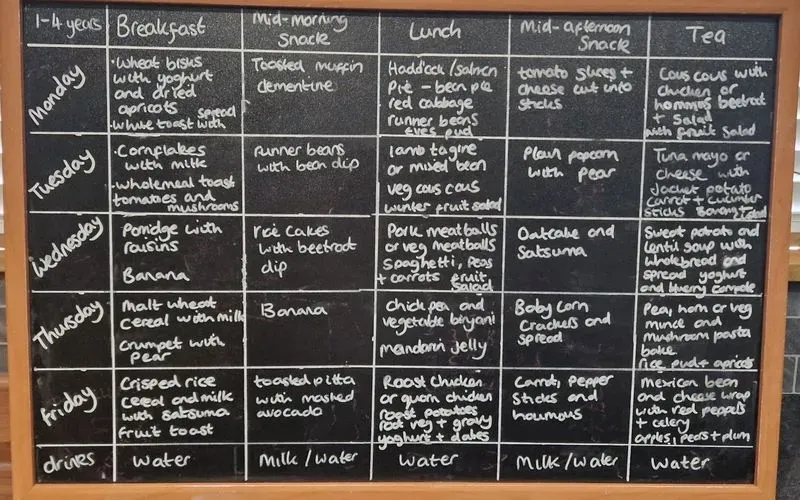 1-4 years
Breakfast
Mid-morning
Snack
Lunch
Mid-afternoon
Snack
Tea
Monday
• Wheat bisks
with yoghurt
and dried
apricots
spread
• White toast with
Toasted muffin
clementine
Haddock/salmon
Pie - bean pie
red cabbage
runner beans
eves pud
tomato slices +
cheese cut into
sticks
Cous cous with
chicken or
hommus beetroot
+ salad
with fruit salad
Tuesday
• Cornflakes
with milk
• wholemeal toast
tomatoes and
mushrooms
runner beans
with bean dip
lamb tagine
or mixed bean
veg cous cous
winter fruit salad
Plain popcorn
with pear
Tuna mayo or
cheese with
Jacket potato
carrot + cucumber
sticks
Wednesday
Porridge with
raisins
Banana
rice cakes
with beetroot
dip
Pork meatballs
or veg meatballs
spaghetti, peas
+ carrots fruit
salad
Oatcake and
Satsuma
Sweet potato and
lentil soup with
wholebread and
spread yoghurt
and
Thursday
Malt wheat
cereal with milk
Crumpet with
pear
Banana
Chick pea and
vegetable biryani
mandarin jelly
Baby corn
crackers and
spread
Pea, ham or veg
mince and
mushroom pasta
bake
rice pud + apricots
Friday
Crisped rice
cereal and milk
with satsuma
fruit toast
toasted pitta
with mashed
avocado
Roast chicken
or quorn chicken
roast potatoes
root veg + gravy
yoghurt + dates
Carrot, pepper
sticks and
houmous
Mexican bean
and cheese wrap
with red peppers
+ celery
apples, pears + plum
drinks
Water
Milk / water
Water
Milk / water
Water